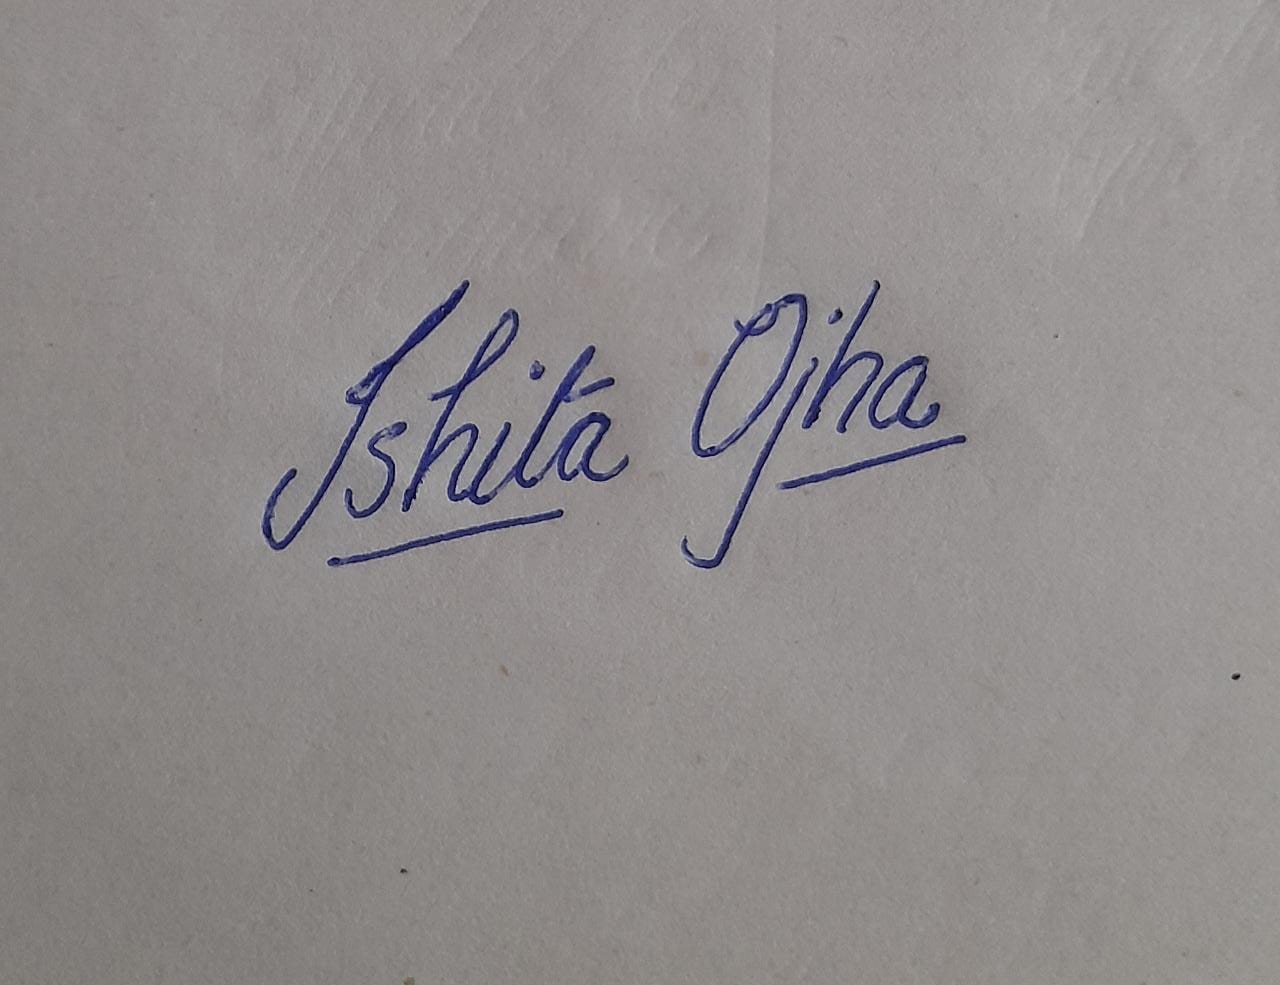 Ishita Ojha